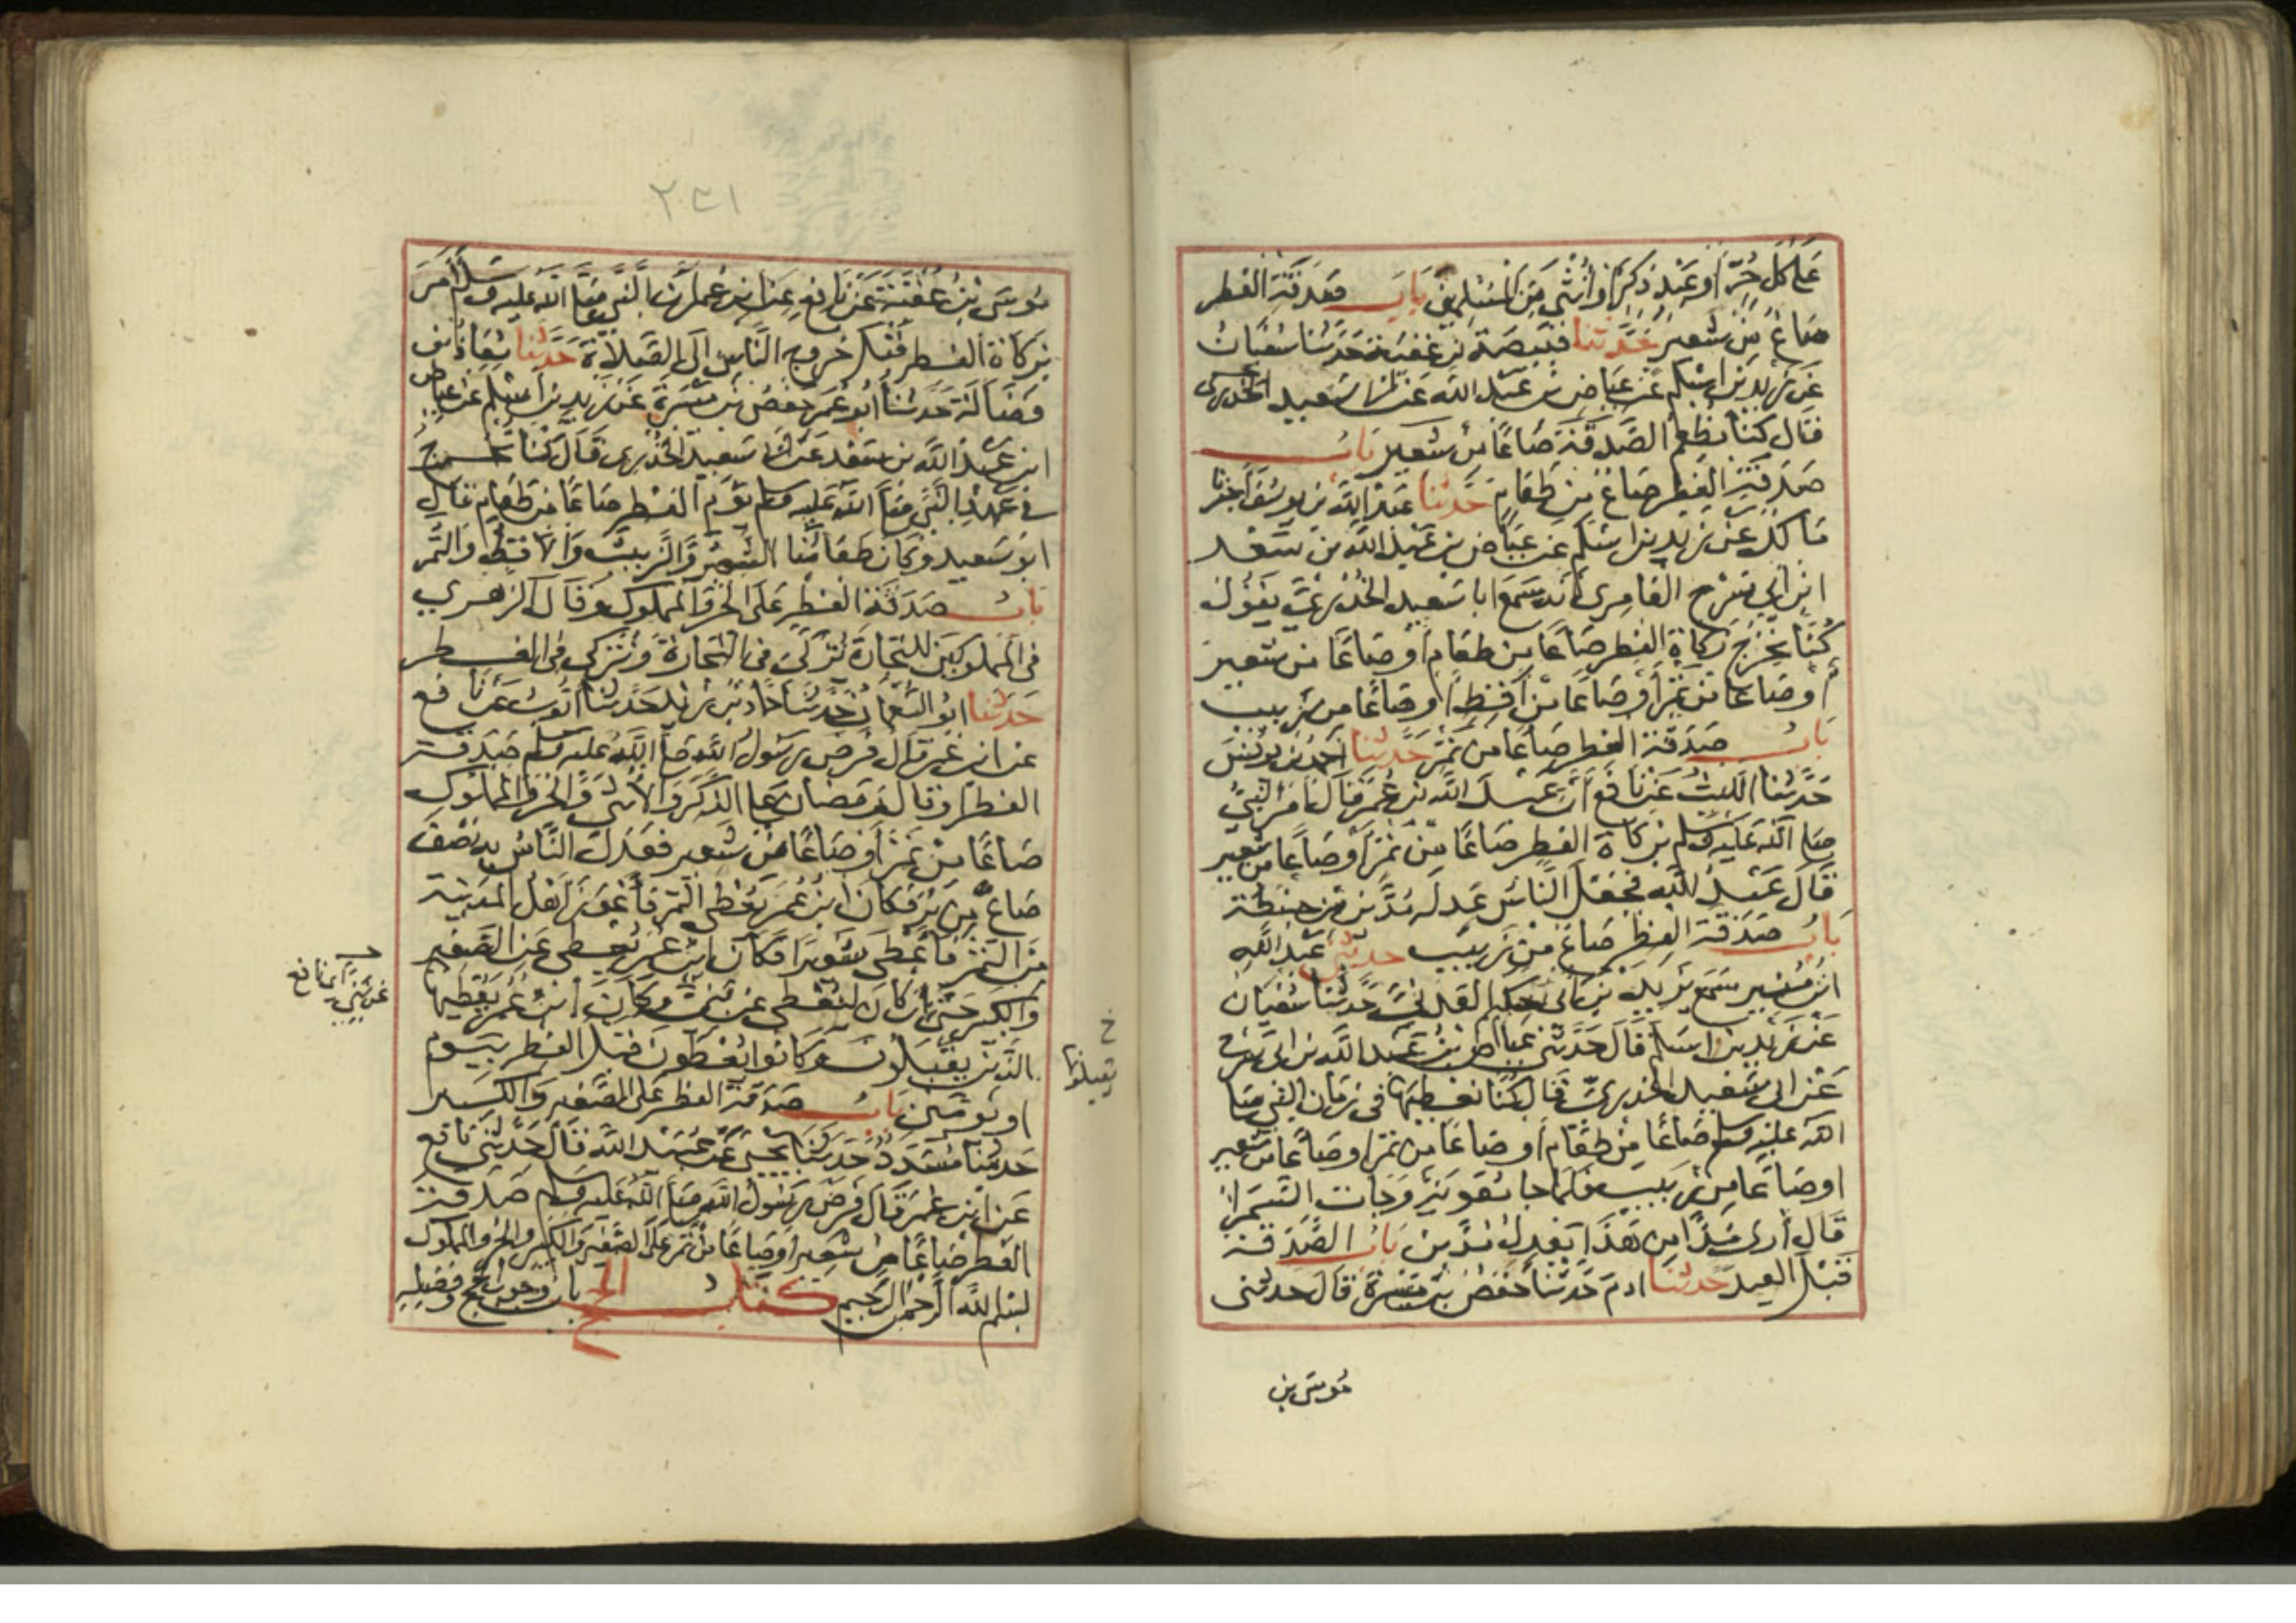 على كل حر او عبد ذكر او انثى من المسلمين باب صدقة الفطر
صاع من شعير حدثنا قبيصة بن عقبة حدثنا سفيان
عن زيد بن اسلم عن عياض بن عبد الله عن ابي سعيد الخدري
قال كنا نطعم الصدقة صاعا من شعير باب
صدقة الفطر صاع من طعام حدثنا عبد الله بن يوسف اخبرنا
مالك عن زيد بن اسلم عن عياض بن عبد الله بن سعد
ابن ابي سرح العامري انه سمع ابا سعيد الخدري يقول
كنا نخرج زكاة الفطر صاعا من طعام او صاعا من شعير
او صاعا من تمر او صاعا من اقط او صاعا من زبيب
باب صدقة الفطر صاعا من تمر حدثنا احمد بن يونس
حدثنا الليث عن نافع ان عبد الله بن عمر قال امر النبي
صلى الله عليه وسلم بزكاة الفطر صاعا من تمر او صاعا من شعير
قال عبد الله فجعل الناس عدله مدين من حنطة
باب صدقة الفطر صاع من زبيب حدثني عبد الله
ابن منير سمع يزيد بن ابي حكيم العدني حدثنا سفيان
عن زيد بن اسلم قال حدثني عياض بن عبد الله بن ابي سرح
عن ابي سعيد الخدري قال كنا نعطيها في زمان النبي صلى
الله عليه وسلم صاعا من طعام او صاعا من تمر او صاعا من شعير
او صاعا من زبيب فلما جا معوية وجات السمرا
قال ارى مدا من هذا يعدل مدين باب الصدقة
قبل العيد حدثنا ادم حدثنا حفص بن ميسرة قال حدثني
موسى بن
٢٣١
موسى بن عقبة عن نافع عن ابن عمر ان النبي صلى الله عليه وسلم امر
بزكاة الفطر قبل خروج الناس الى الصلاة حدثنا معاذ بن
فضالة حدثنا ابو عمر حفص بن ميسرة عن زيد بن اسلم عن عياض
ابن عبد الله بن سعد عن ابي سعيد الخدري قال كنا نخرج
في عهد النبي صلى الله عليه وسلم يوم الفطر صاعا من طعام قال
ابو سعيد وكان طعامنا الشعير والزبيب والاقط والتمر
باب صدقة الفطر على الحر والمملوك وقال الزهري
في المملوكين للتجارة تزكى في التجارة وتزكى في الفطر
حدثنا ابو النعمان حدثنا حماد بن زيد حدثنا ايوب عن نافع
عن ابن عمر قال فرض رسول الله صلى الله عليه وسلم صدقة
الفطر او قال رمضان على الذكر والانثى والحر والمملوك
صاعا من تمر او صاعا من شعير فعدل الناس به نصف
صاع من بر فكان ابن عمر يعطي التمر فاعوز اهل المدينة
من التمر فاعطى شعيرا فكان ابن عمر يعطي عن الصغير
والكبير حتى ان كان ليعطي عن بني وكان ابن عمر يعطيها
الذين يقبلون وكانوا يعطون قبل الفطر بيوم
او يومين باب صدقة الفطر على الصغير والكبير
حدثنا مسدد حدثنا يحيى عن عبيد الله قال حدثني نافع
عن ابن عمر قال فرض رسول الله صلى الله عليه وسلم صدقة
الفطر صاعا من شعير او صاعا من تمر على الصغير والكبير والحر والمملوك
بسم الله الرحمن الرحيم كتاب الحج باب وجوب الحج وفضله
عن بني نافع
خ
يقبلونها